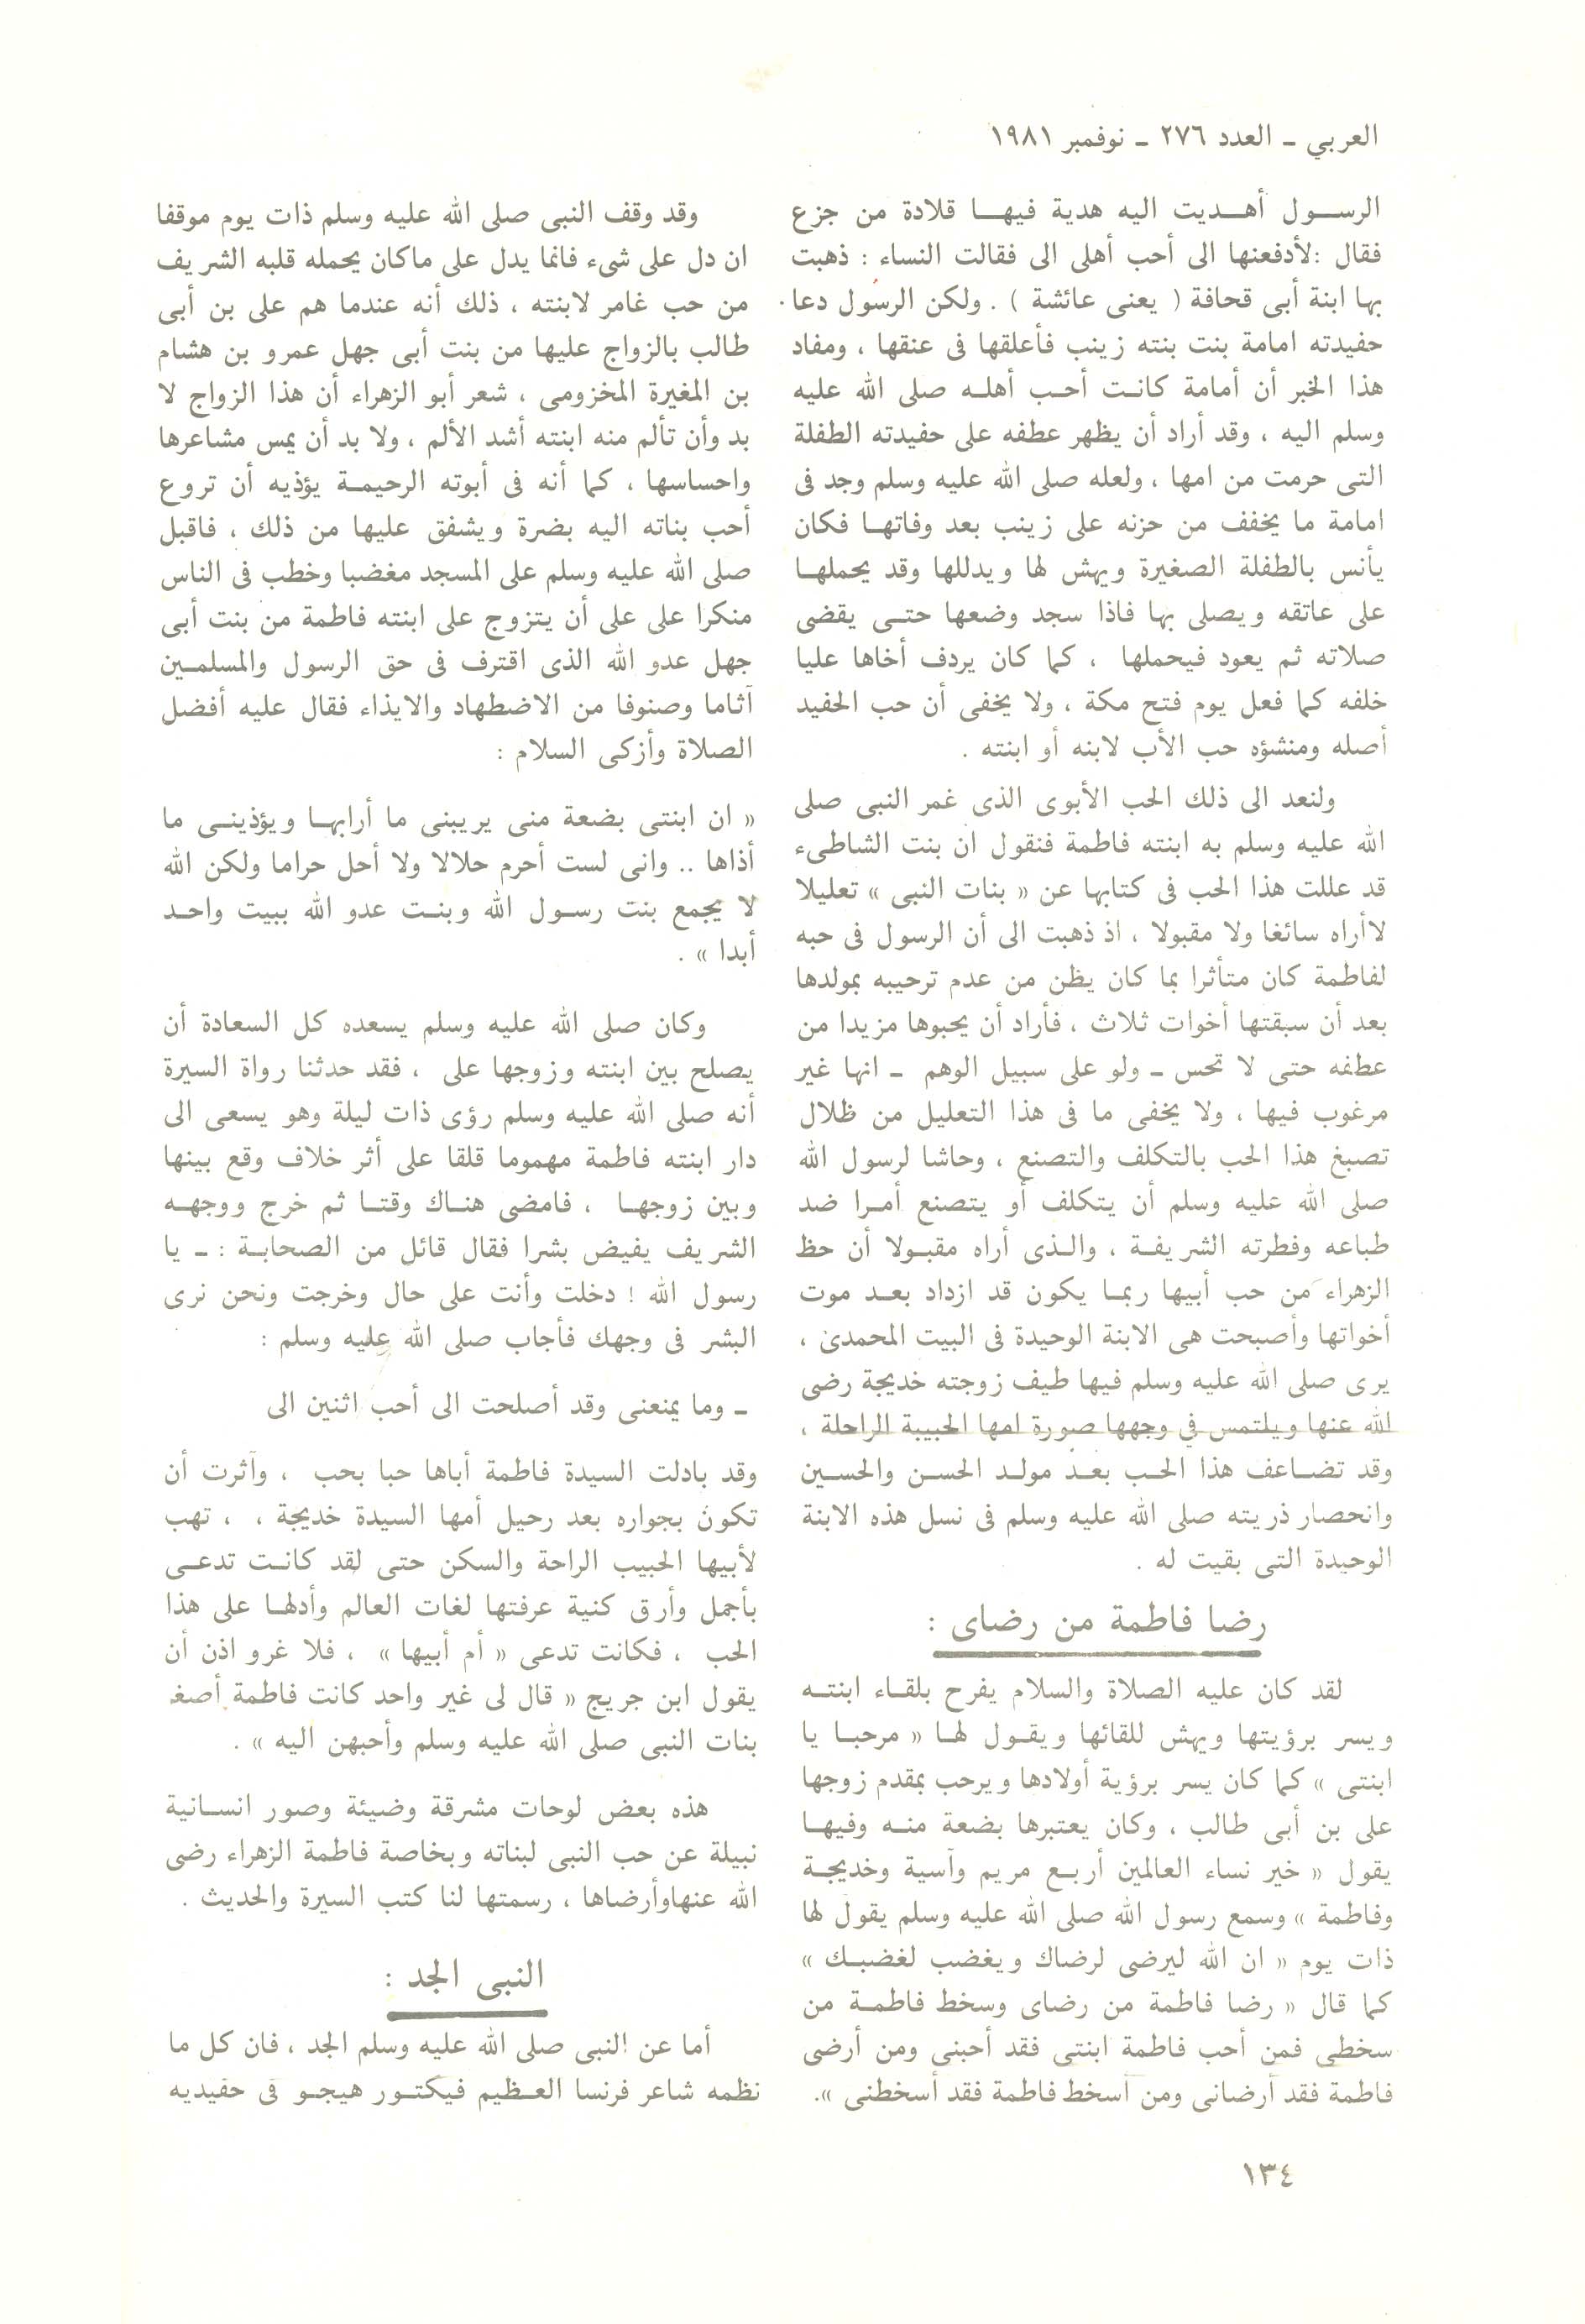 العربي ـ العدد ٢٧٦ ـ نوفمبر ١٩٨١
الرسول أهديت اليه هدية فيها قلادة من جزع
فقال :لأدفعنها الى أحب أهلى الى فقالت النساء : ذهبت
بها ابنة أبى قحافة ( يعنى عائشة ) . ولكن الرسول دعا
حفيدته امامة بنت بنته زينب فأعلقها فى عنقها ، ومفاد
هذا الخبر أن أمامة كانت أحب أهله صلى الله عليه
وسلم اليه ، وقد أراد أن يظهر عطفه على حفيدته الطفلة
التى حرمت من امها ، ولعله صلى الله عليه وسلم وجد فى
امامة ما يخفف من حزنه على زينب بعد وفاتها فكان
يأنس بالطفلة الصغيرة ويهش لها ويدللها وقد يحملها
على عاتقه ويصلى بها فاذا سجد وضعها حتى يقضى
صلاته ثم يعود فيحملها ، كما كان يردف أخاها عليا
خلفه كما فعل يوم فتح مكة ، ولا يخفى أن حب الحفيد
أصله ومنشؤه حب الأب لابنه أو ابنته .
ولنعد الى ذلك الحب الأبوى الذى غمر النبى صلى
الله عليه وسلم به ابنته فاطمة فنقول ان بنت الشاطىء
قد عللت هذا الحب فى كتابها عن « بنات النبى » تعليلا
لاأراه سائغا ولا مقبولا ، اذ ذهبت الى أن الرسول فى حبه
لفاطمة كان متأثرا بما كان يظن من عدم ترحيبه بمولدها
بعد أن سبقتها أخوات ثلاث ، فأراد أن يحبوها مزيدا من
عطفه حتى لا تحس ـ ولو على سبيل الوهم ـ انها غير
مرغوب فيها ، ولا يخفى ما فى هذا التعليل من ظلال
تصبغ هذا الحب بالتكلف والتصنع ، وحاشا لرسول الله
صلى الله عليه وسلم أن يتكلف أو يتصنع أمرا ضد
طباعه وفطرته الشريفة ، والذى أراه مقبولا أن حظ
الزهراء من حب أبيها ربما يكون قد ازداد بعد موت
أخواتها وأصبحت هى الابنة الوحيدة فى البيت المحمدى ،
يرى صلى الله عليه وسلم فيها طيف زوجته خديجة رضى
الله عنها ويلتمس في وجهها صورة امها الحبيبة الراحلة ،
وقد تضاعف هذا الحب بعد مولد الحسن والحسين
وانحصار ذريته صلى الله عليه وسلم فى نسل هذه الابنة
الوحيدة التى بقيت له .
رضا فاطمة من رضاى :
لقد كان عليه الصلاة والسلام يفرح بلقاء ابنته
ويسر برؤيتها ويهش للقائها ويقول لها « مرحبا يا
ابنتى » كما كان يسر برؤية أولادها ويرحب بمقدم زوجها
على بن أبى طالب ، وكان يعتبرها بضعة منه وفيها
يقول « خير نساء العالمين أربع مريم وآسية وخديجة
وفاطمة » وسمع رسول الله صلى الله عليه وسلم يقول لها
ذات يوم « ان الله ليرضى لرضاك ويغضب لغضبك »
كما قال « رضا فاطمة من رضاى وسخط فاطمة من
سخطى فمن أحب فاطمة ابنتى فقد أحبنى ومن أرضى
فاطمة فقد أرضانى ومن أسخط فاطمة فقد أسخطنى ».
وقد وقف النبى صلى الله عليه وسلم ذات يوم موقفا
ان دل على شىء فانما يدل على ماكان يحمله قلبه الشريف
من حب غامر لابنته ، ذلك أنه عندما هم على بن أبى
طالب بالزواج عليها من بنت أبى جهل عمرو بن هشام
بن المغيرة المخزومى ، شعر أبو الزهراء أن هذا الزواج لا
بد وأن تألم منه ابنته أشد الألم ، ولا بد أن يمس مشاعرها
واحساسها ، كما أنه فى أبوته الرحيمة يؤذيه أن تروع
أحب بناته اليه بضرة ويشفق عليها من ذلك ، فاقبل
صلى الله عليه وسلم على المسجد مغضبا وخطب فى الناس
منكرا على على أن يتزوج على ابنته فاطمة من بنت أبى
جهل عدو الله الذى اقترف فى حق الرسول والمسلمين
آثاما وصنوفا من الاضطهاد والايذاء فقال عليه أفضل
الصلاة وأزكى السلام :
« ان ابنتى بضعة منى يريبنى ما أرابها ويؤذينى ما
أذاها .. وانى لست أحرم حلالا ولا أحل حراما ولكن الله
لا يجمع بنت رسول الله وبنت عدو الله ببيت واحد
أبدا » .
وكان صلى الله عليه وسلم يسعده كل السعادة أن
يصلح بين ابنته وزوجها على ، فقد حدثنا رواة السيرة
أنه صلى الله عليه وسلم رؤى ذات ليلة وهو يسعى الى
دار ابنته فاطمة مهموما قلقا على أثر خلاف وقع بينها
وبين زوجها ، فامضى هناك وقتا ثم خرج ووجهه
الشريف يفيض بشرا فقال قائل من الصحابة : ـ يا
رسول الله ! دخلت وأنت على حال وخرجت ونحن نرى
البشر فى وجهك فأجاب صلى الله عليه وسلم :
ـ وما يمنعنى وقد أصلحت الى أحب اثنين الى
وقد بادلت السيدة فاطمة أباها حبا بحب ، وآثرت أن
تكون بجواره بعد رحيل أمها السيدة خديجة ، ، تهب
لأبيها الحبيب الراحة والسكن حتى لقد كانت تدعى
بأجمل وأرق كنية عرفتها لغات العالم وأدلها على هذا
الحب ، فكانت تدعى « أم أبيها » ، فلا غرو اذن أن
يقول ابن جريج « قال لى غير واحد كانت فاطمة أصغ
بنات النبى صلى الله عليه وسلم وأحبهن اليه » .
هذه بعض لوحات مشرقة وضيئة وصور انسانية
نبيلة عن حب النبى لبناته وبخاصة فاطمة الزهراء رضى
الله عنهاوأرضاها ، رسمتها لنا كتب السيرة والحديث .
النبى الجد :
أما عن النبى صلى الله عليه وسلم الجد ، فان كل ما
نظمه شاعر فرنسا العظيم فيكتور هيجو فى حفيديه
١٣٤